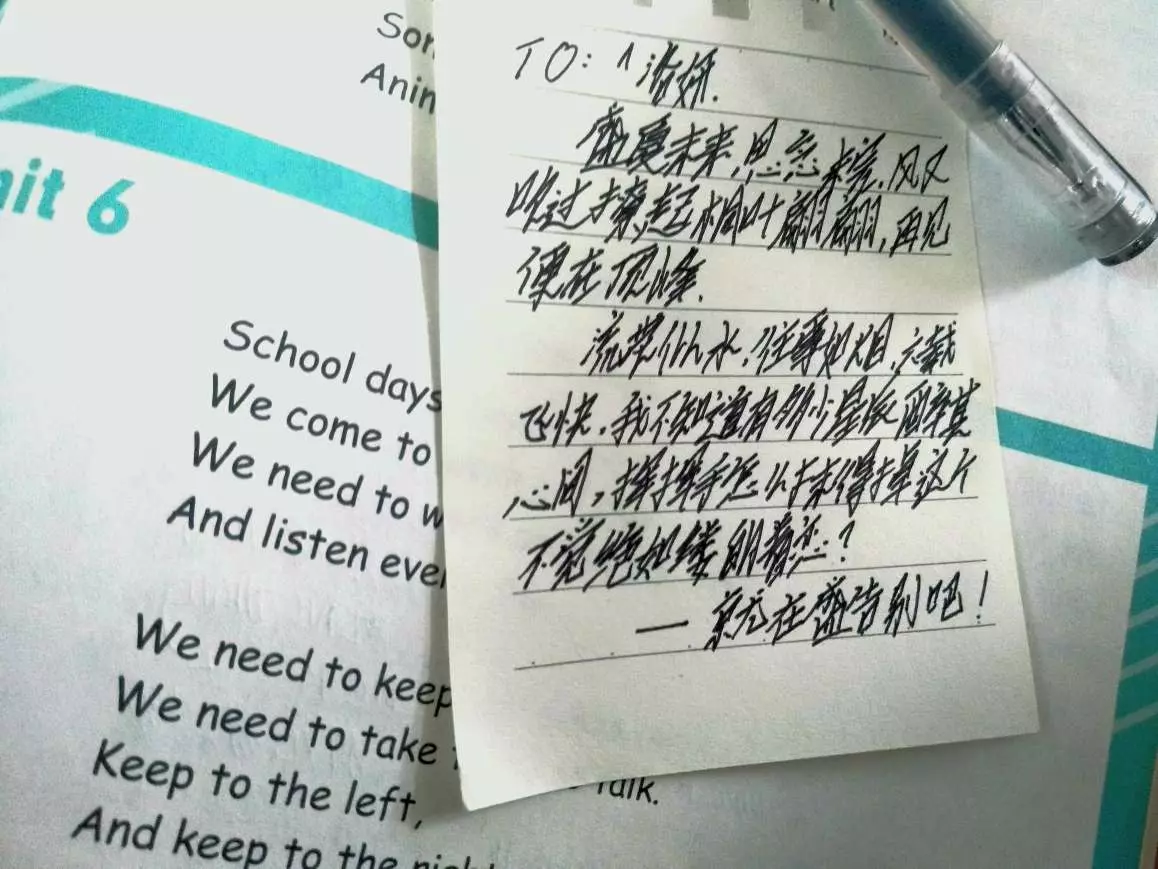 Son
Anim
nit 6
School days
We come to
We need to w
And listen eve
We need to keep
We need to take t
talk.
Keep to the left,
And keep to the righ
TO:
盛夏未来,思念未完,风又
吹过撩起桐叶翩翩,再见
便在顶峰.
流带似水,往事如烟,六载
飞快,我不知道有多少星辰
心间,挥挥手怎么抹得掉这个
不觉绝如缕明着恋?
— 就在盛告别吧!